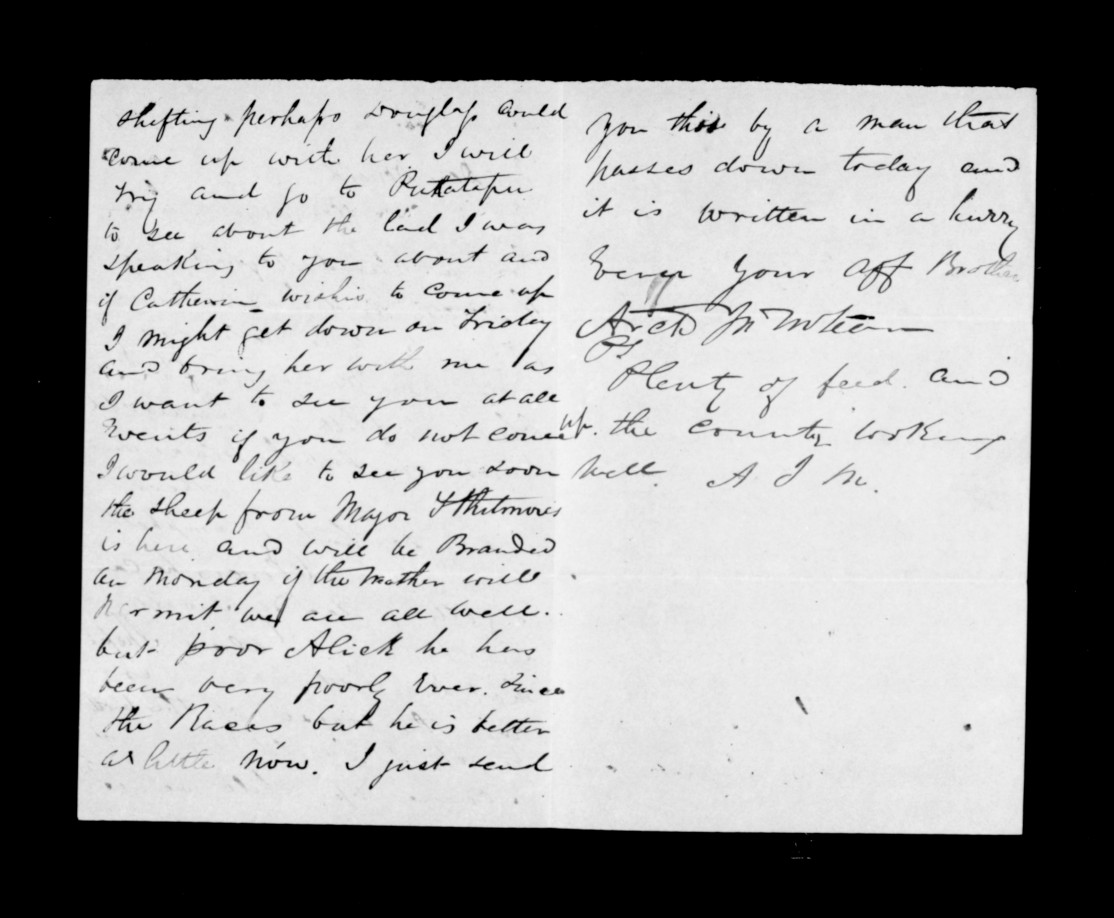 shifting perhaps Douglass could
come up with her I will
try and go to
to see about the lad I was
speaking to you about and
if Catherin wishis to come up
I might get down on Friday
and bring her with me as
I want to see you at all
Events if you do not come up.
I would like to see you soon
the sheep from Major Whitmores
is here and will be Branded
on Monday if the Weather will
permit we are all well.
but poor Alick he has
been very poorly Ever. since
the Races but he is better
a little now. I just send
you this by a man that
passes down today and
it is written in a hurry
Ever your aff Brother
Arch McLean
PS
Plenty of feed. and
the county looking
well. A J M.